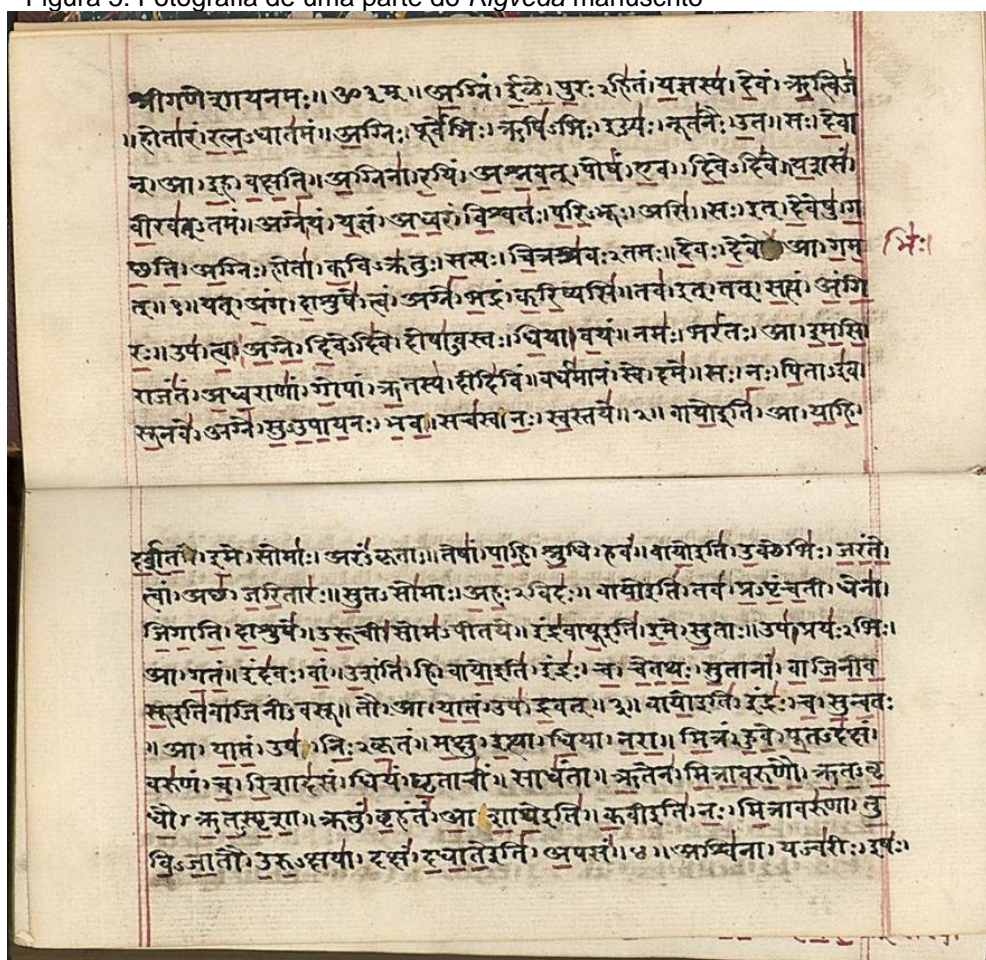 Figura Fotografia de uma parte do Rigveda manuscrito
श्रीगणेशायनमः॥ ॐ३म्॥ अग्निं। ईळे। पुरःऽहितं। यज्ञस्य। देवं। ऋत्विजं
॥होतारं। रत्नऽधातमं॥ अग्निः। पूर्वेभिः। ऋषिऽभिः। ईड्यः। नूतनैः। उत॥ सः। देवा
न्। आ। इह। वक्षति॥ अग्निना। रयिं। अश्नवत्। पोषं। एव। दिवेऽदिवे॥ यशसं
वीरवत्ऽतमं॥ अग्ने। यं। यज्ञं। अध्वरं। विश्वतः। परिऽभूः। असि॥ सः। इत्। देवेषु। ग
छति। अग्निः। होता। कविऽक्रतुः। सत्यः। चित्रश्रवःऽतमः॥ देवः। देवे आ। गम
भिः।
त्॥१॥ यत्। अंग। दाशुषे। त्वं। अग्ने। भद्रं। करिष्यसि॥ तव। इत्। तत्। सत्यं। अंगि
रः॥ उप। त्वा। अग्ने। दिवेऽदिवे। दोषाऽवस्तः। धिया। वयं॥ नमः। भरंतः। आ। इमसि।
राजंतं। अध्वराणां। गोपां। ऋतस्य। दीदिविं॥ वर्धमानं। स्वे। दमे॥ सः। नः। पिताऽइव।
सूनवे। अग्ने। सुऽउपायनः। भव॥ सचस्व। नः। स्वस्तये॥२॥ वायोइति। आ। याहि।
दर्शत। इमे। सोमाः। अरंऽकृताः॥ तेषां। पाहि। श्रुधि। हवं॥ वायोइति। उक्थेभिः। जरंते।
त्वां। अछ। जरितारः॥ सुतऽसोमाः। अहःऽविदः॥ वायोइति। तव। प्रऽपृंचती। धेना।
जिगाति। दाशुषे॥ उरूची। सोमऽपीतये॥ इंद्रवायूइति। इमे। सुताः॥ उप। प्रयःऽभिः।
आ। गतं॥ इंदवः। वां। उशंति। हि। वायोइति। इंद्रः। च। चेतथः। सुतानां। वाजिनीव
सूइतिवाजिनीऽवसू॥ तौ। आ। यातं। उप। द्रवत्॥३॥ वायोइति। इंद्रः। च। सुन्वतः
॥ आ। यातं। उप। निःऽकृतं॥ मक्षु। इत्था। धिया। नरा॥ मित्रं। हुवे। पूतऽदक्षं।
वरुणं। च। रिशादसं। धियं। घृताचीं। साधंता॥ ऋतेन। मित्रावरुणौ। ऋतऽवृ
धौ। ऋतऽस्पृशा॥ क्रतुं। बृहंतं। आशाथेइति॥ कवीइति। नः। मित्रावरुणा। तु
विऽजातौ। उरुऽक्षया। दक्षं। दधातेइति। अपसं॥४॥ अश्विना। यज्वरीः। इषः।